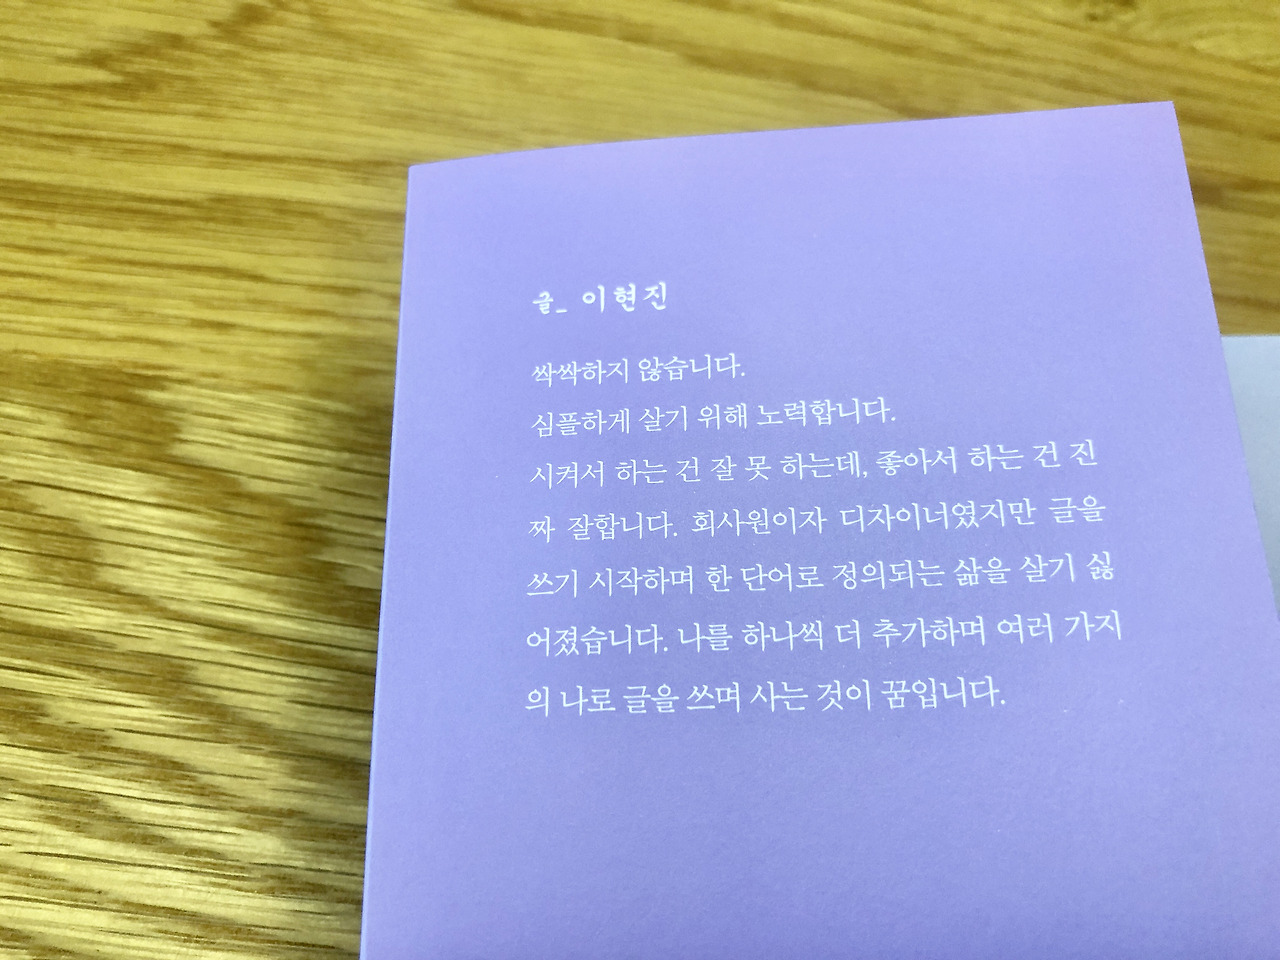 글_ 이현진
싹싹하지 않습니다.
심플하게 살기 위해 노력합니다.
시켜서 하는 건 잘 못 하는데, 좋아서 하는 건 진
짜 잘합니다. 회사원이자 디자이너였지만 글을
쓰기 시작하며 한 단어로 정의되는 삶을 살기 싫
어졌습니다. 나를 하나씩 더 추가하며 여러 가지
의 나로 글을 쓰며 사는 것이 꿈입니다.